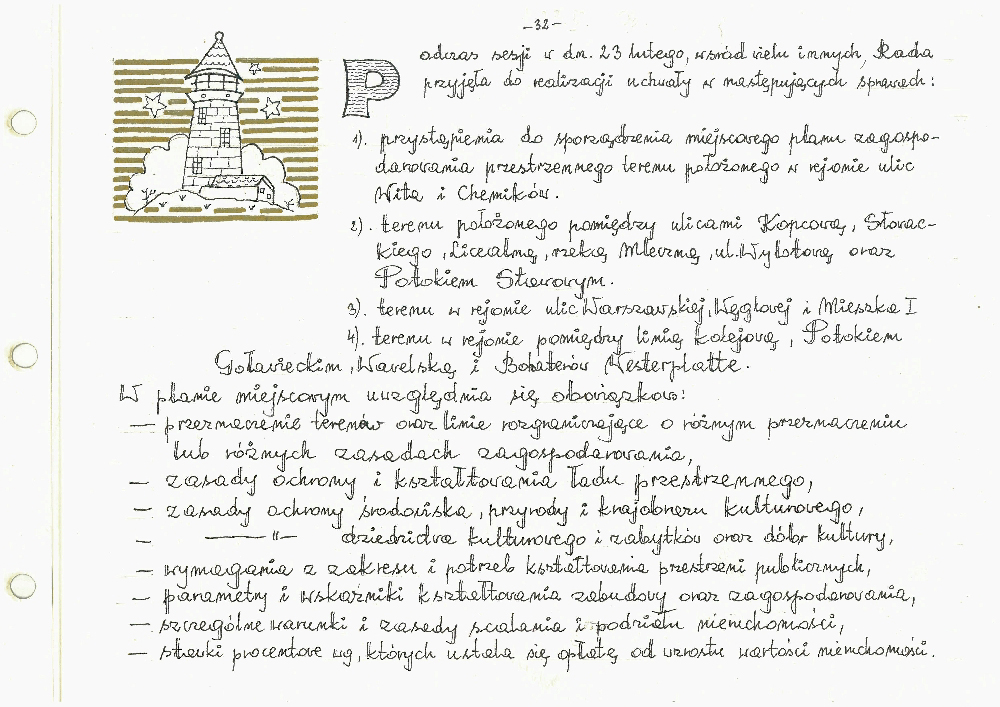 -32-
Podczas sesji w dn. 23 lutego, wśród wielu innych, Rada
przyjęła do realizacji uchwały w następujących sprawach:
1). przystąpienia do sporządzenia miejscowego planu zagospo-
darowania przestrzennego terenu położonego w rejonie ulic
Wita i Chemików.
2). terenu położonego pomiędzy ulicami Kopcową, Słowac-
kiego, Licealną, rzeką Mleczną, ul. Wylotową oraz
Potokiem Stawowym.
3). terenu w rejonie ulic Warszawskiej, Węglowej i Mieszka I
4). terenu w rejonie pomiędzy linią kolejową, Potokiem
Goławieckim, Wawelską i Bohaterów Westerplatte.
W planie miejscowym uwzględnia się obowiązkowo:
— przeznaczenie terenów oraz linie rozgraniczające o różnym przeznaczeniu
lub różnych zasadach zagospodarowania,
— zasady ochrony i kształtowania ładu przestrzennego,
— zasady ochrony środowiska, przyrody i krajobrazu kulturowego,
— —— " — dziedzictwa kulturowego i zabytków oraz dóbr kultury,
— wymagania z zakresu i potrzeb kształtowania przestrzeni publicznych,
— parametry i wskaźniki kształtowania zabudowy oraz zagospodarowania,
— szczególne warunki i zasady scalania i podziału nieruchomości,
— stawki procentowe wg, których ustala się opłatę od wzrostu wartości nieruchomości.